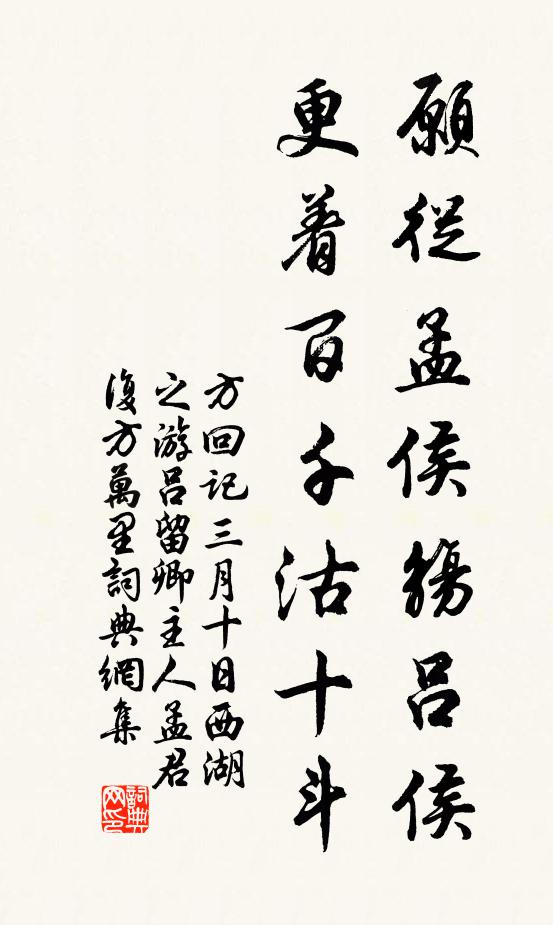 願從孟侯觴呂侯
更着百千沽十斗
方回記三月十日西湖
之游呂留卿主人孟君
復方萬里詞典網集
詞典网印